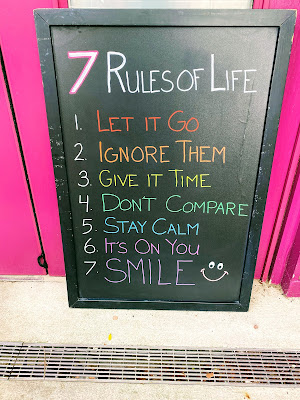 7 RULES OF LIFE
1. LET IT GO
2. IGNORE THEM
3. GIVE IT TIME
4. DONT COMPARE
5 STAY CALM
6 IT'S ON YOU
7 SMILE